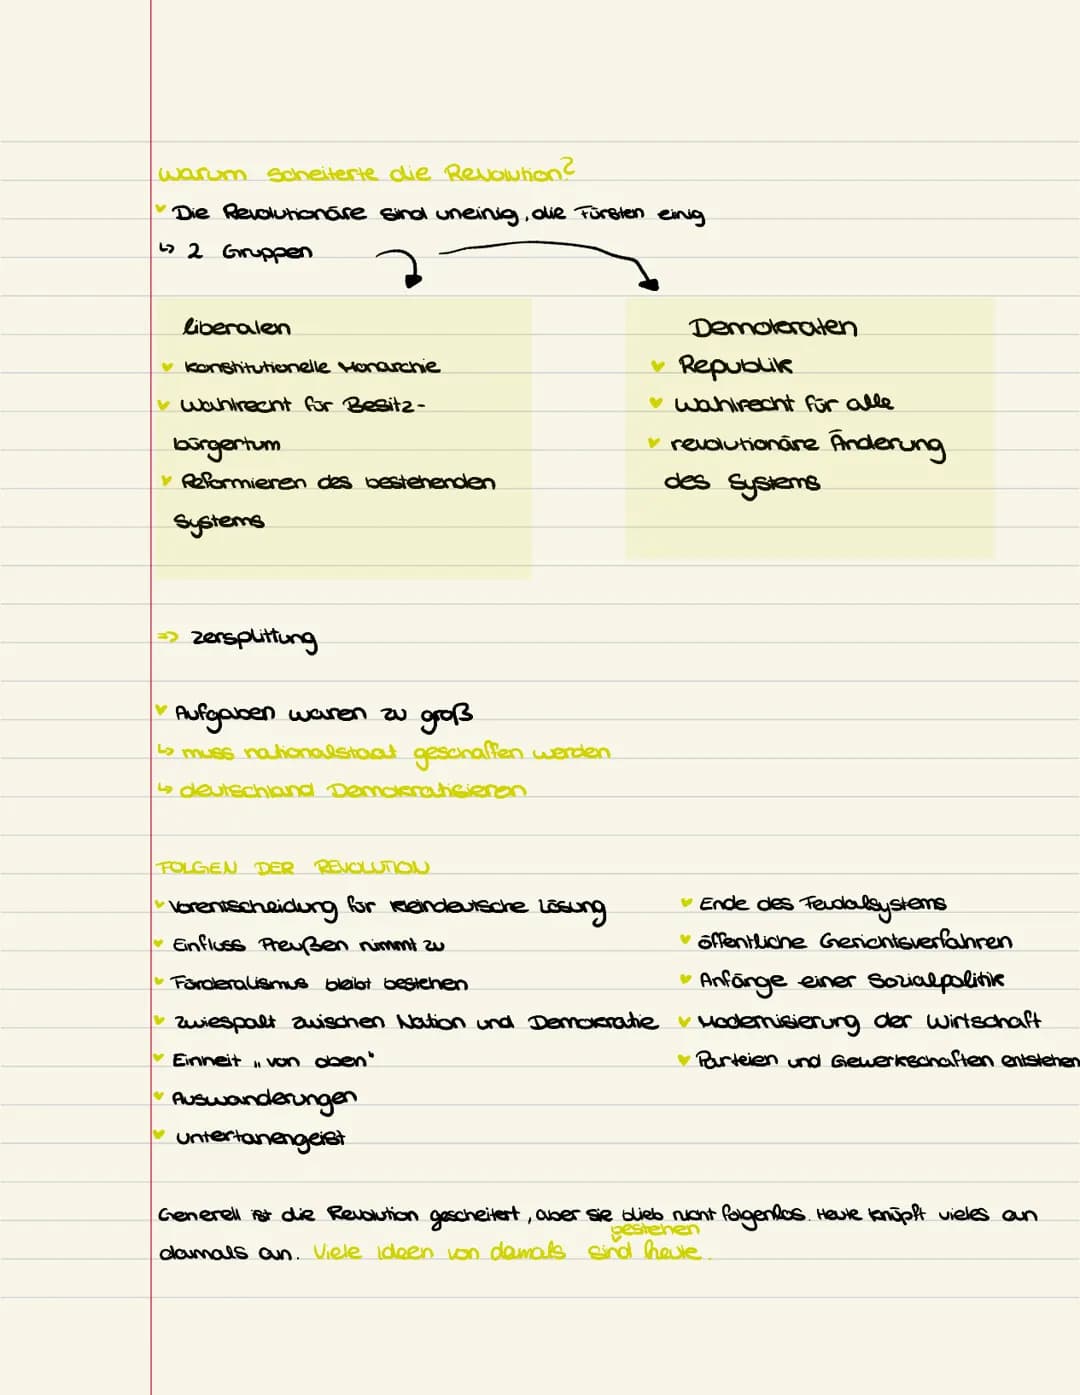 warum scheiterte die Revolution?
Die Revolutionäre sind uneinig, die Fürsten einig
↳ 2 Gruppen
liberalen
konstitutionelle Monarchie
Wahlrecht für Besitz-
bürgertum
Reformieren des bestehenden
Systems
Demokraten
Republik
Wahlrecht für alle
revolutionäre Änderung
des Systems
=> zersplittung
Aufgaben waren zu groß
↳ muss nationalstaat geschaffen werden
↳ deutschland Demokratisieren
FOLGEN DER REVOLUTION
Vorentscheidung für kleindeutsche Lösung
Einfluss Preußen nimmt zu
Förderalismus bleibt bestehen
zwiespalt zwischen Nation und Demokratie
Einheit „von oben"
Auswanderungen
untertanengeist
Ende des Feudalsystems
öffentliche Gerichtsverfahren
Anfänge einer Sozialpolitik
Modernisierung der Wirtschaft
Parteien und Gewerkschaften entstehen
Generell ist die Revolution gescheitert, aber sie blieb nicht folgenlos. Heute knüpft vieles an
damals an. Viele ideen von damals sind heute.
bestehen